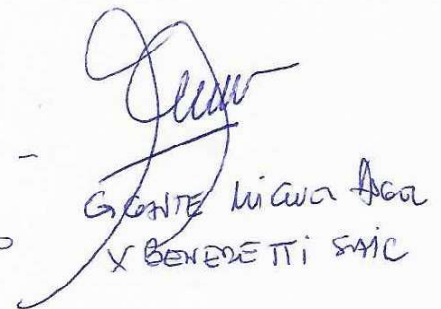 GIGANTE MIGUEL ANGEL
X BENEDETTI SAIC